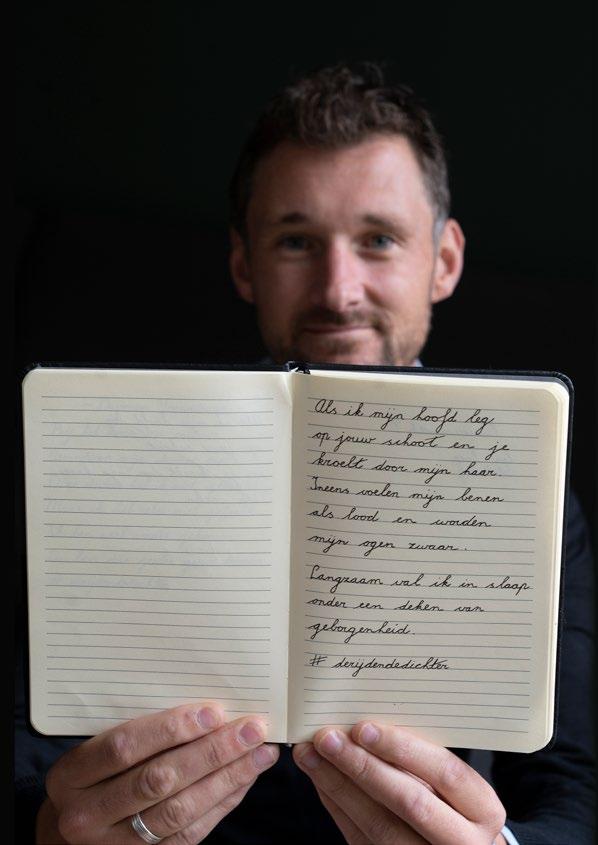 Als ik mijn hoofd leg
op jouw schoot en je
kroelt door mijn haar.
Ineens voelen mijn benen
als lood en worden
mijn ogen zwaar.
Langzaam val ik in slaap
onder een deken van
geborgenheid.
# derijdendedichter